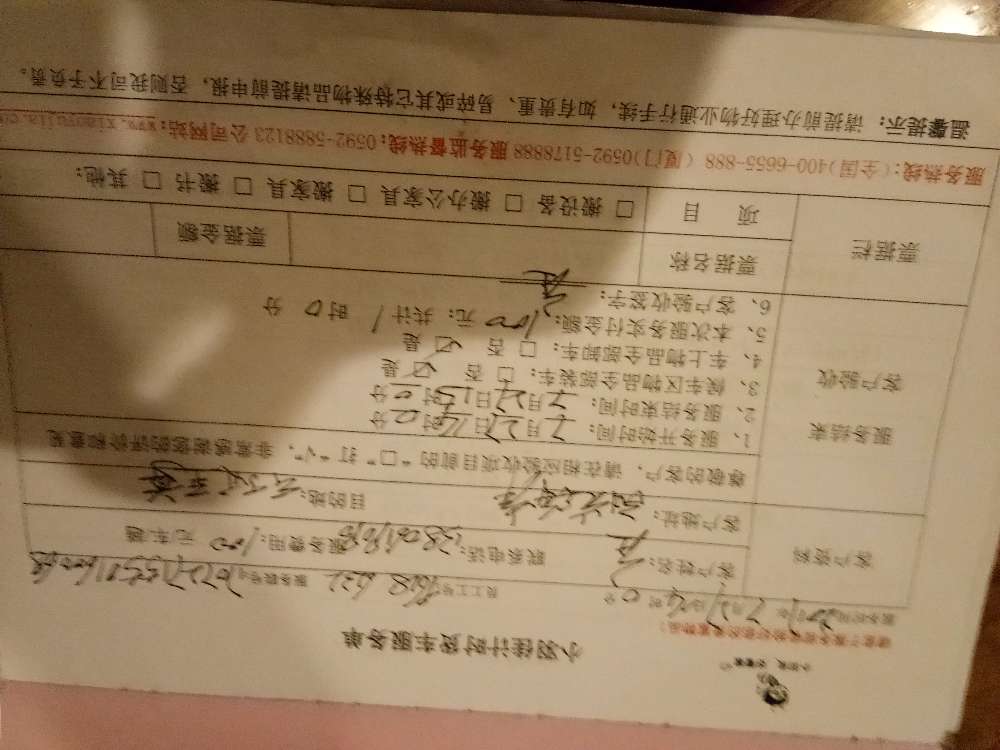 小羽佳计时货车服务单
服务时间 7月27日14时0分 员工工号 服务账号
客户资料
客户姓名: 联系电话: 服务费用:100元/车/趟
客户地址: 目的地:
服务结束
客户验收
尊敬的客户,请在相应验收项目前的“□”打“√”,非常感谢您的评价和意见
1、服务开始时间:7月27日14时0分
2、服务结束时间:7月27日15时0分
3、候车区物品全部装车:□ 否 ☑ 是
4、车上物品全部卸车:□ 否 ☑ 是
5、本次服务实付金额:100元;共计1时0分
6、客户验收签字:
票据栏
票据名称 票据金额
项目 □ 搬设备 □ 搬办公家具 □ 搬家具 □ 搬书 □ 其他:
服务热线:(全国)400-6655-888 (厦门)0592-5178888 服务监督热线:0592-5888123 公司网站:www.xiaoyujia.co
温馨提示:请提前办理好物业通行手续,如有贵重、易碎或其它特殊物品请提前申报,否则我司不予负责。